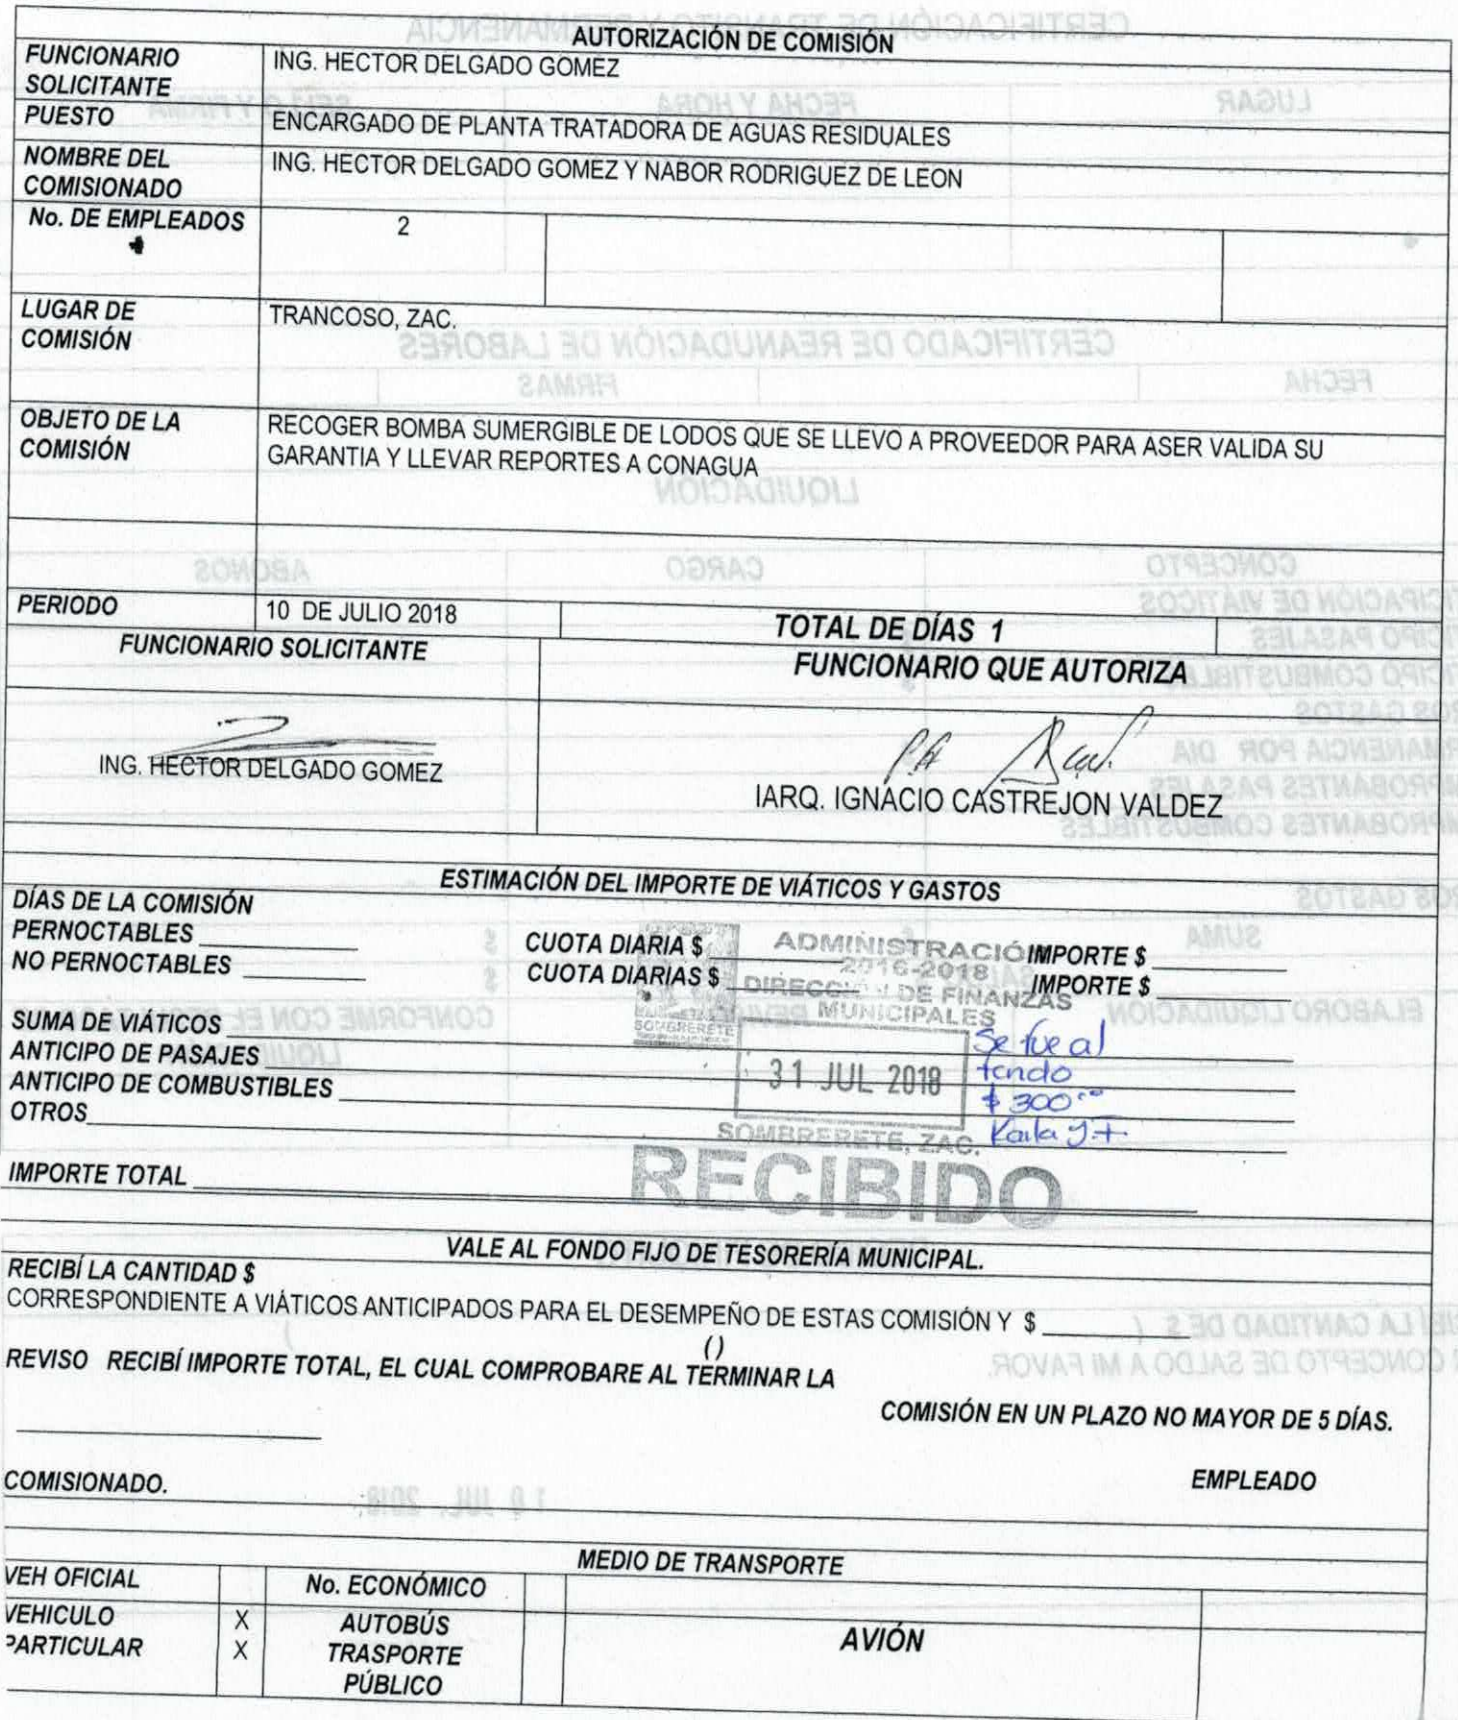 AUTORIZACIÓN DE COMISIÓN
FUNCIONARIO SOLICITANTE
ING. HECTOR DELGADO GOMEZ
PUESTO
ENCARGADO DE PLANTA TRATADORA DE AGUAS RESIDUALES
NOMBRE DEL COMISIONADO
ING. HECTOR DELGADO GOMEZ Y NABOR RODRIGUEZ DE LEON
No. DE EMPLEADOS
2
LUGAR DE COMISIÓN
TRANCOSO, ZAC.
OBJETO DE LA COMISIÓN
RECOGER BOMBA SUMERGIBLE DE LODOS QUE SE LLEVO A PROVEEDOR PARA ASER VALIDA SU
GARANTIA Y LLEVAR REPORTES A CONAGUA
PERIODO
10 DE JULIO 2018
TOTAL DE DÍAS 1
FUNCIONARIO SOLICITANTE
FUNCIONARIO QUE AUTORIZA
ING. HECTOR DELGADO GOMEZ
P.A
IARQ. IGNACIO CASTREJON VALDEZ
ESTIMACIÓN DEL IMPORTE DE VIÁTICOS Y GASTOS
DÍAS DE LA COMISIÓN
PERNOCTABLES
CUOTA DIARIA $
IMPORTE $
NO PERNOCTABLES
CUOTA DIARIAS $
IMPORTE $
ADMINISTRACIÓN
2016-2018
DIRECCIÓN DE FINANZAS
MUNICIPALES
SOMBRERETE
31 JUL 2018
SOMBRERETE, ZAC.
RECIBIDO
Se fue al
fondo
$ 300.00
Karla J.F.
SUMA DE VIÁTICOS
ANTICIPO DE PASAJES
ANTICIPO DE COMBUSTIBLES
OTROS
IMPORTE TOTAL
VALE AL FONDO FIJO DE TESORERÍA MUNICIPAL.
RECIBÍ LA CANTIDAD $
CORRESPONDIENTE A VIÁTICOS ANTICIPADOS PARA EL DESEMPEÑO DE ESTAS COMISIÓN Y $
()
REVISO RECIBÍ IMPORTE TOTAL, EL CUAL COMPROBARE AL TERMINAR LA
COMISIÓN EN UN PLAZO NO MAYOR DE 5 DÍAS.
COMISIONADO.
EMPLEADO
MEDIO DE TRANSPORTE
VEH OFICIAL
No. ECONÓMICO
VEHICULO PARTICULAR
X
X
AUTOBÚS
TRASPORTE
PÚBLICO
AVIÓN